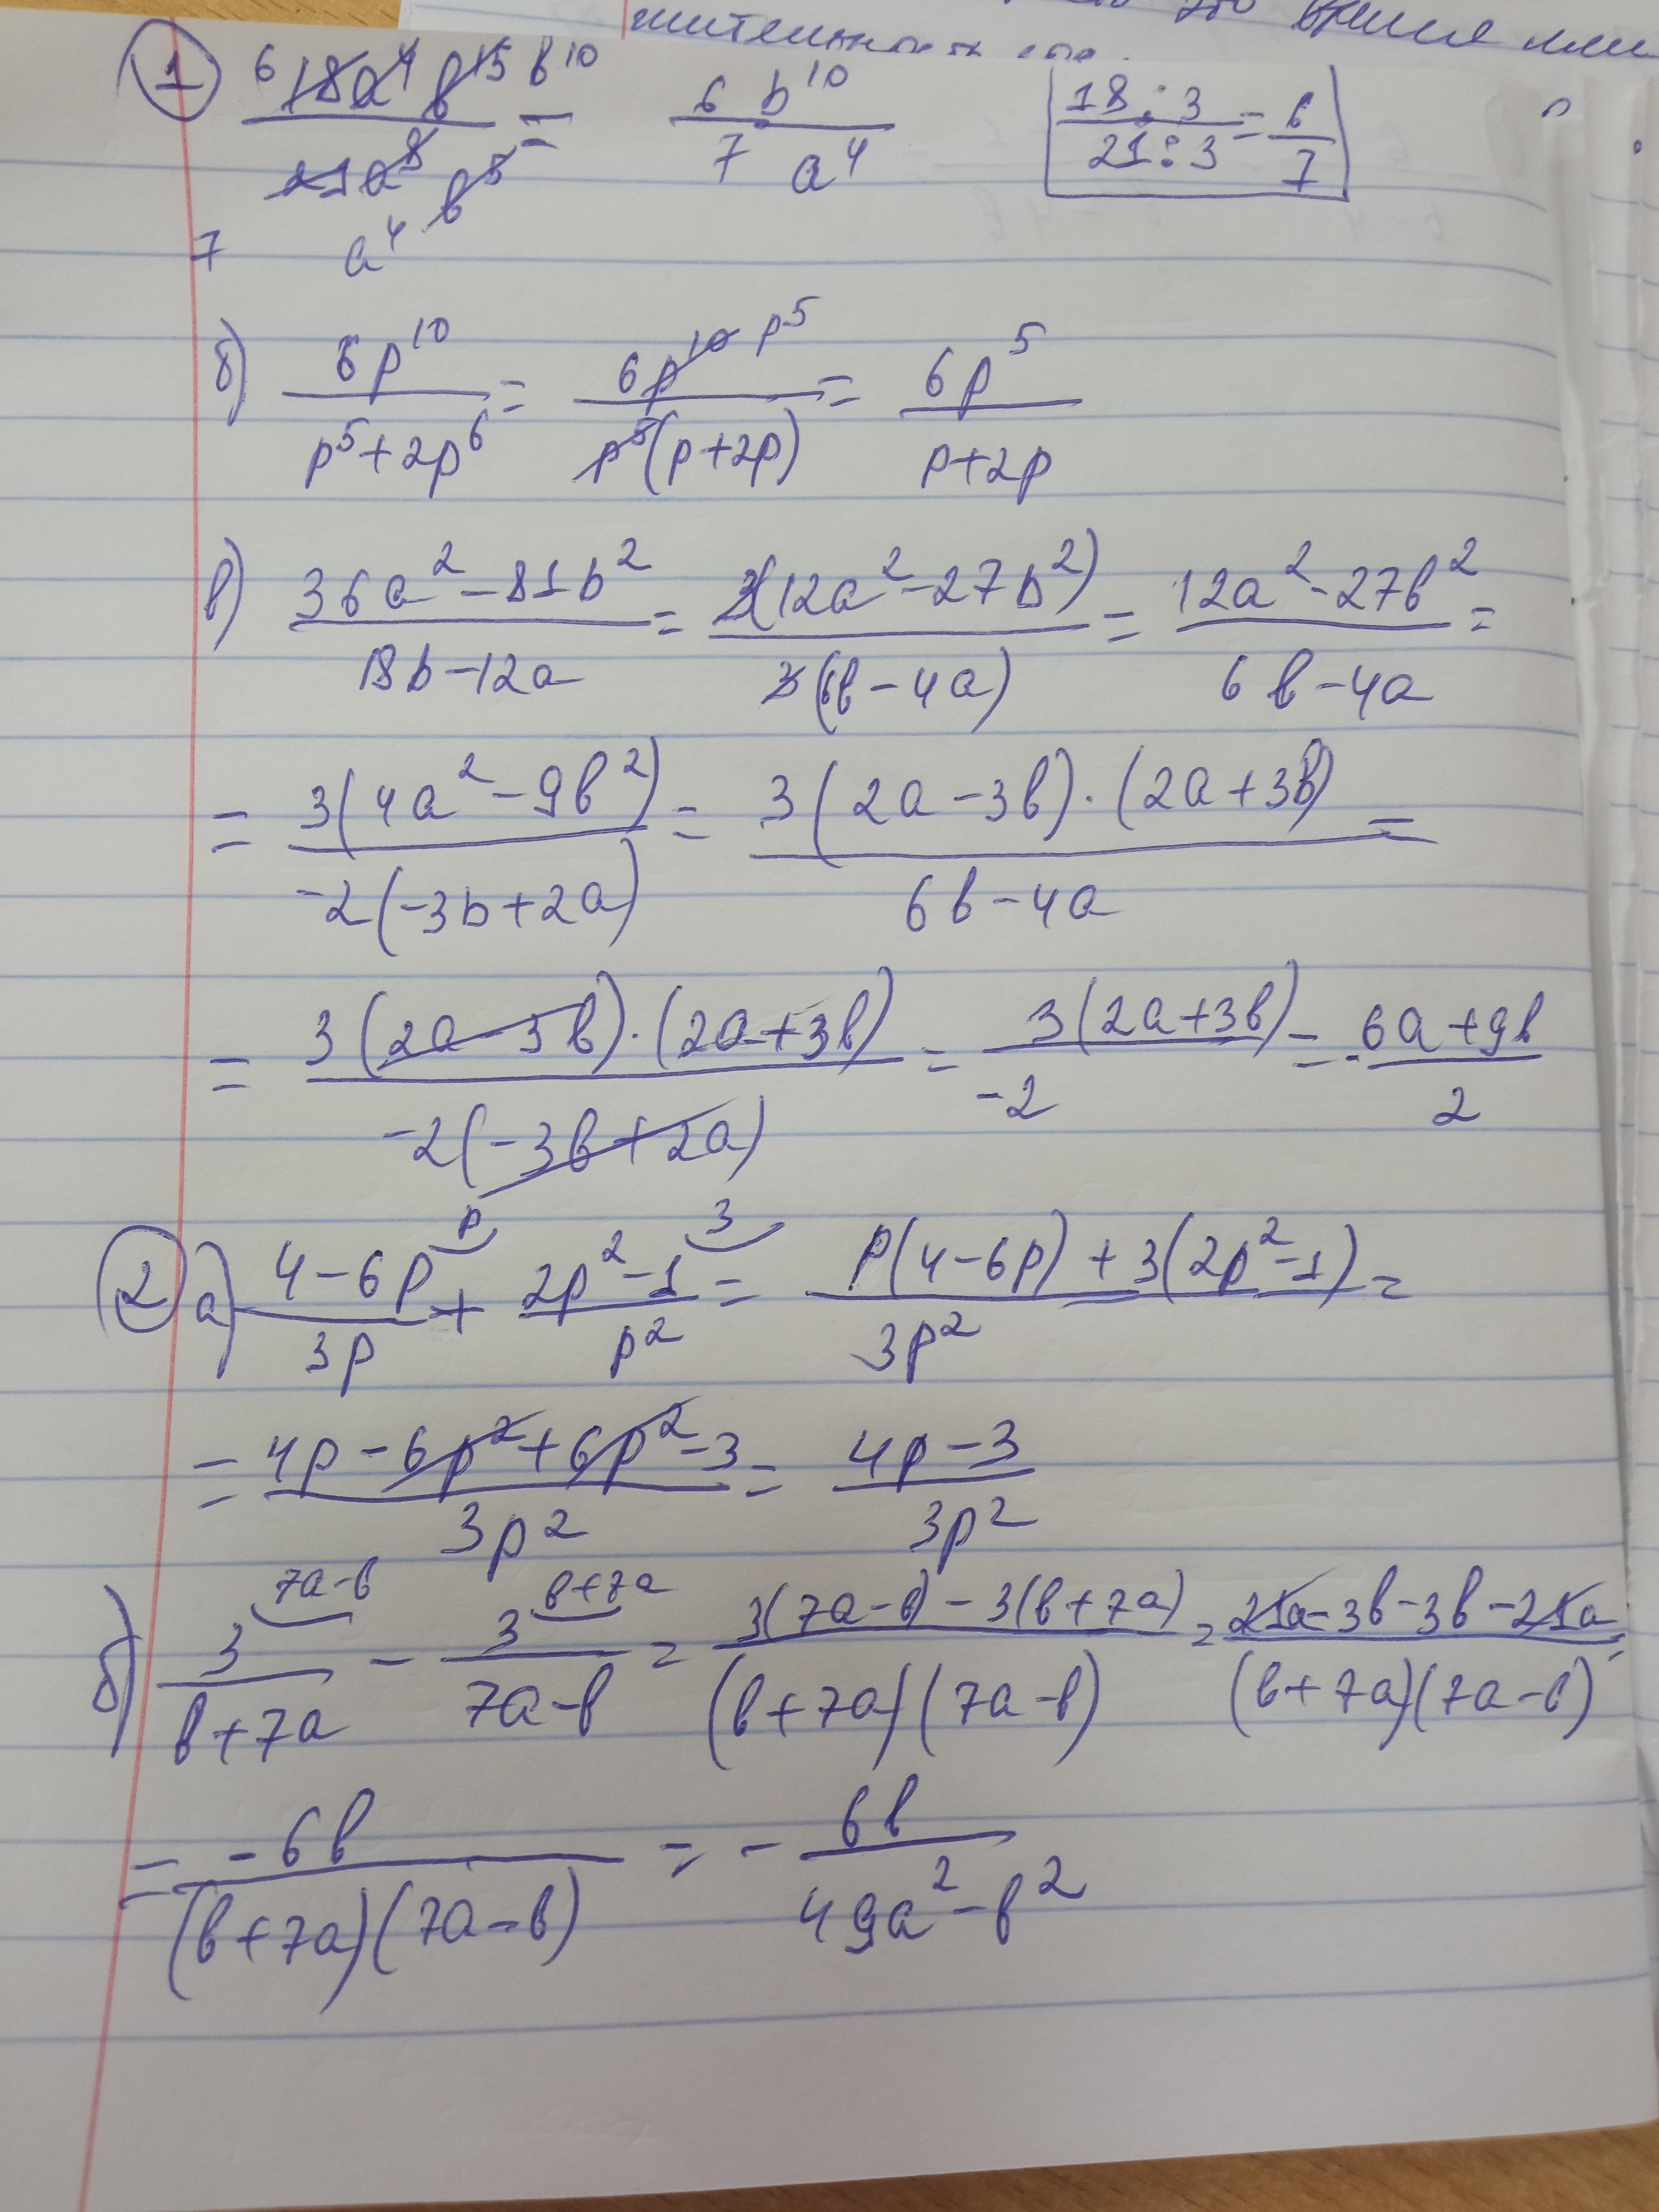 жительных
① 6 18a⁴ b¹⁵ b¹⁰ / 21a⁸ b⁵ = 6 b¹⁰ / 7 a⁴ 18:3 / 21:3 = 6/7
7 a⁴
б) 6p¹⁰ / p⁵+2p⁶ = 6p¹⁰ p⁵ / p⁵(p+2p) = 6p⁵ / p+2p
в) 36a²-81b² / 18b-12a = 3(12a²-27b²) / 3(6b-4a) = 12a²-27b² / 6b-4a =
= 3(4a²-9b²) / -2(-3b+2a) = 3(2a-3b)·(2a+3b) / 6b-4a =
= 3(2a-3b)·(2a+3b) / -2(-3b+2a) = 3(2a+3b) / -2 = - 6a+9b / 2
p 3
② а) 4-6p / 3p + 2p²-1 / p² = p(4-6p)+3(2p²-1) / 3p² =
= 4p-6p²+6p²-3 / 3p² = 4p-3 / 3p²
7a-b b+7a
б) 3 / b+7a - 3 / 7a-b = 3(7a-b)-3(b+7a) / (b+7a)(7a-b) = 21a-3b-3b-21a / (b+7a)(7a-b) =
= -6b / (b+7a)(7a-b) = - 6b / 49a²-b²